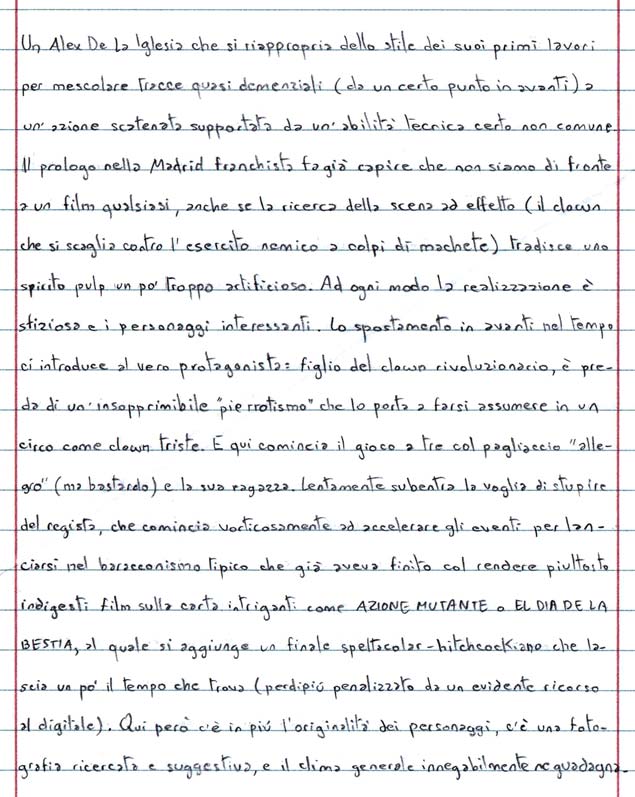 Un Alex De La Iglesia che si riappropria dello stile dei suoi primi lavori
per mescolare tracce quasi demenziali (da un certo punto in avanti) a
un'azione scatenata supportata da un'abilità tecnica certo non comune.
Il prologo nella Madrid franchista fa già capire che non siamo di fronte
a un film qualsiasi, anche se la ricerca della scena ad effetto (il clown
che si scaglia contro l'esercito nemico a colpi di machete) tradisce uno
spirito pulp un po' troppo artificioso. Ad ogni modo la realizzazione è
sfiziosa e i personaggi interessanti. Lo spostamento in avanti nel tempo
ci introduce al vero protagonista: figlio del clown rivoluzionario, è pre-
da di un'insopprimibile "pierrotismo" che lo porta a farsi assumere in un
circo come clown triste. E qui comincia il gioco a tre col pagliaccio "alle-
gro" (ma bastardo) e la sua ragazza. Lentamente subentra la voglia di stupire
del regista, che comincia vorticosamente ad accelerare gli eventi per lan-
ciarsi nel baracconismo tipico che già aveva finito col rendere piuttosto
indigesti film sulla carta intriganti come AZIONE MUTANTE o EL DIA DE LA
BESTIA, al quale si aggiunge un finale spettacolar-hitchcockiano che la-
scia un po' il tempo che trova (perdipiù penalizzato da un evidente ricorso
al digitale). Qui però c'è in più l'originalità dei personaggi, c'è una foto-
grafia ricercata e suggestiva, e il clima generale innegabilmente ne guadagna.